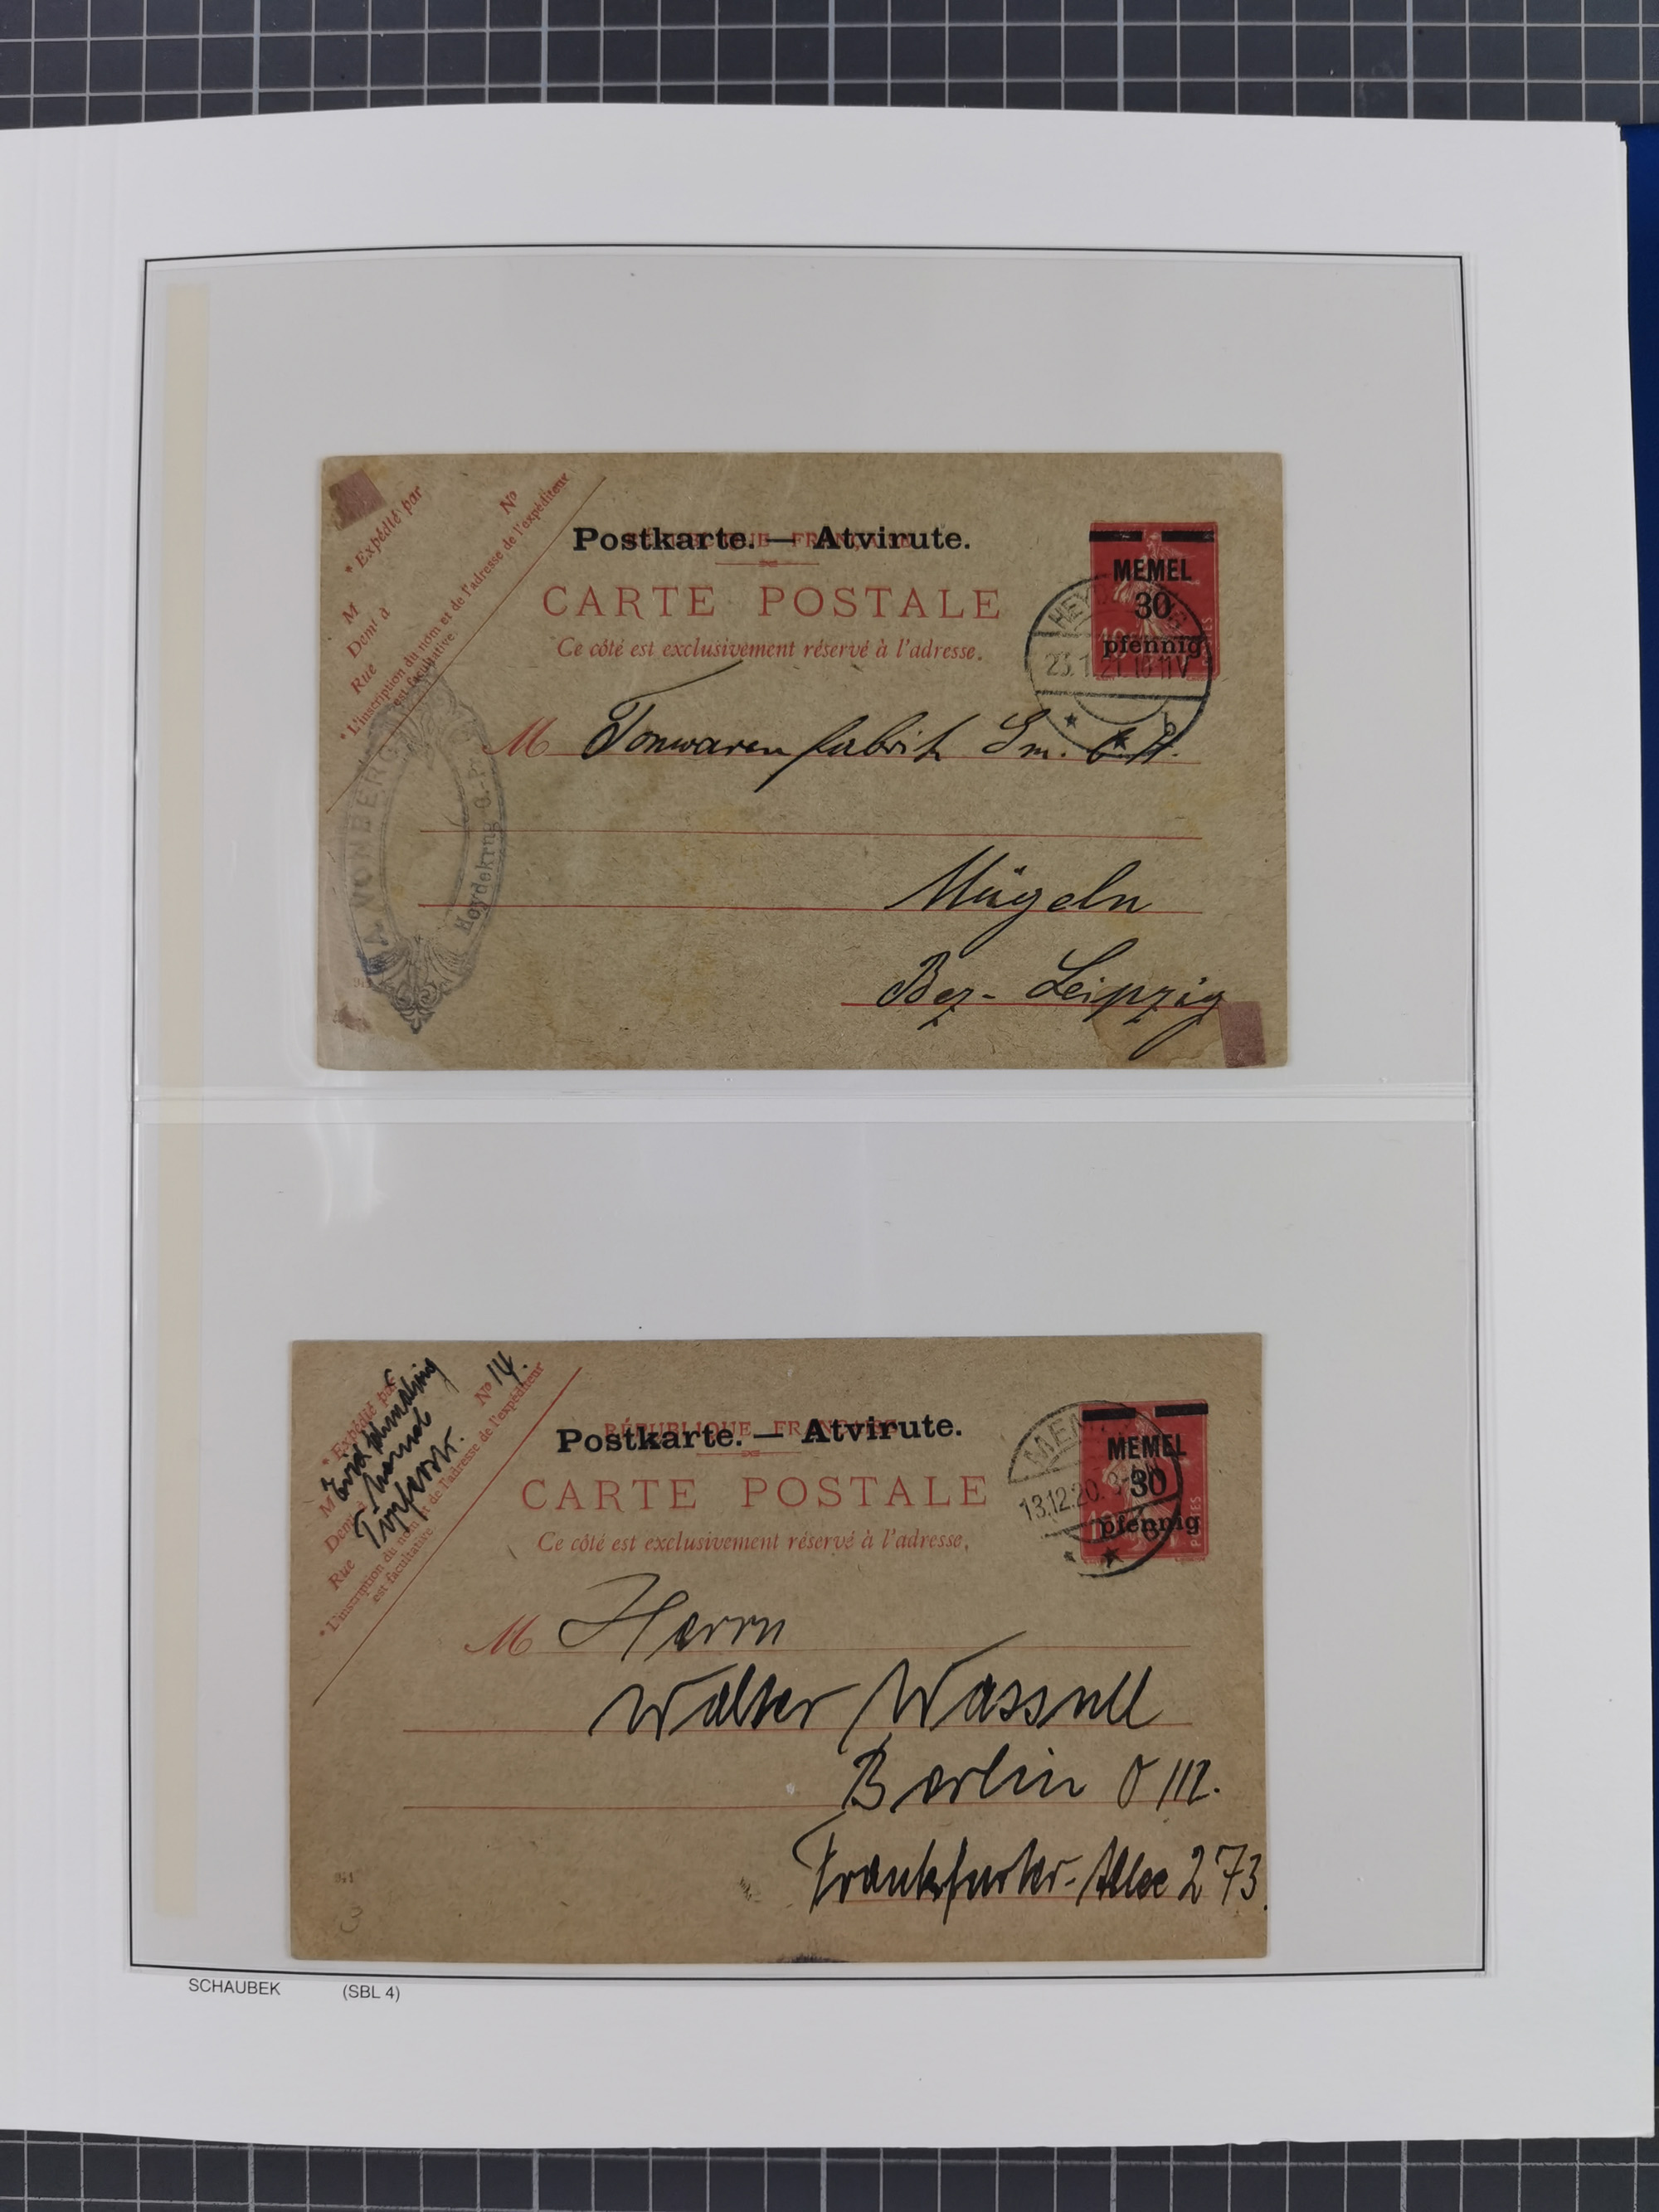 * Expédié par
Nº
M
Demi à
Rue
* L'inscription du nom et de l'adresse de l'expéditeur
est facultative.
Postkarte. — Atvirute.
CARTE POSTALE
Ce côté est exclusivement réservé à l'adresse.
MEMEL
30
pfennig
23.1.21.10-11V
b
M Tonwarenfabrik Gm. b. H.
Mügeln
Bez- Leipzig
A. VONBERG
Heydekrug O.-Pr.
* Expédié par
Nº 14.
M
Demi à
Rue
* L'inscription du nom et de l'adresse de l'expéditeur
est facultative.
RÉPUBLIQUE FRANÇAISE
Postkarte. — Atvirute.
CARTE POSTALE
Ce côté est exclusivement réservé à l'adresse.
MEMEL
13.12.20.
MEMEL
30
pfennig
POSTES
M Herrn
Walter
Berlin O 112.
Frankfurter-Allee 273.
941
3
SCHAUBEK (SBL 4)